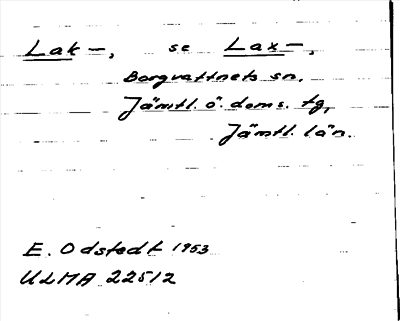 Lak-, se Lax-,
Borgvattnets sn.
Jämtl. ö. doms. tg,
Jämtl. län.
E. Odstedt 1953
ULMA 22512